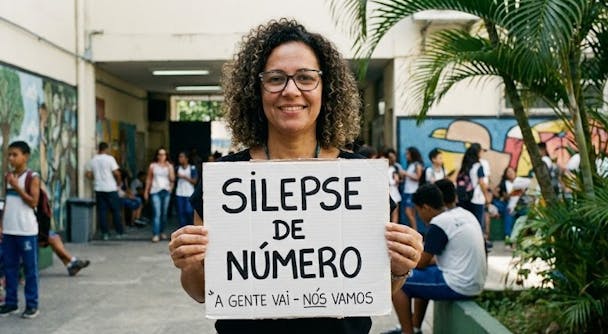 SILEPSE
DE
NÚMERO
"A GENTE VAI - NÓS VAMOS